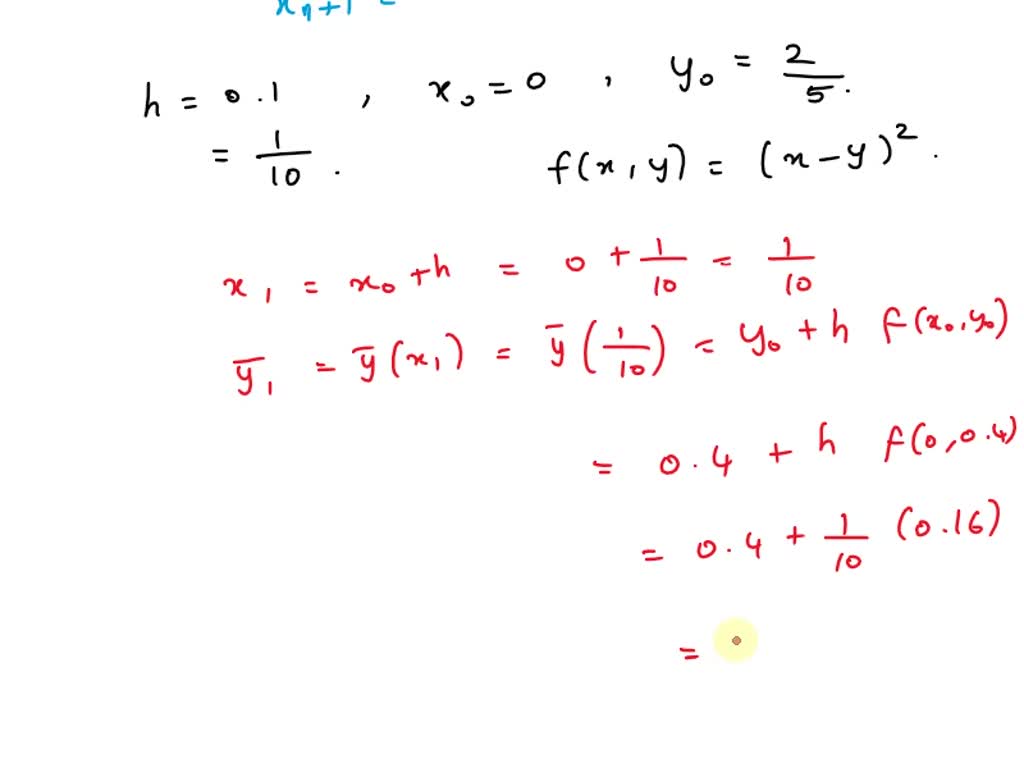 xₙ₊₁ =
h = 0.1 , x₀ = 0 , y₀ = 2/5.
= 1/10 . f(x, y) = (x − y)² .
x₁ = x₀ + h = 0 + 1/10 = 1/10
ȳ₁ = ȳ(x₁) = ȳ(1/10) = y₀ + h f(x₀, y₀)
= 0.4 + h f(0, 0.4)
= 0.4 + 1/10 (0.16)
=